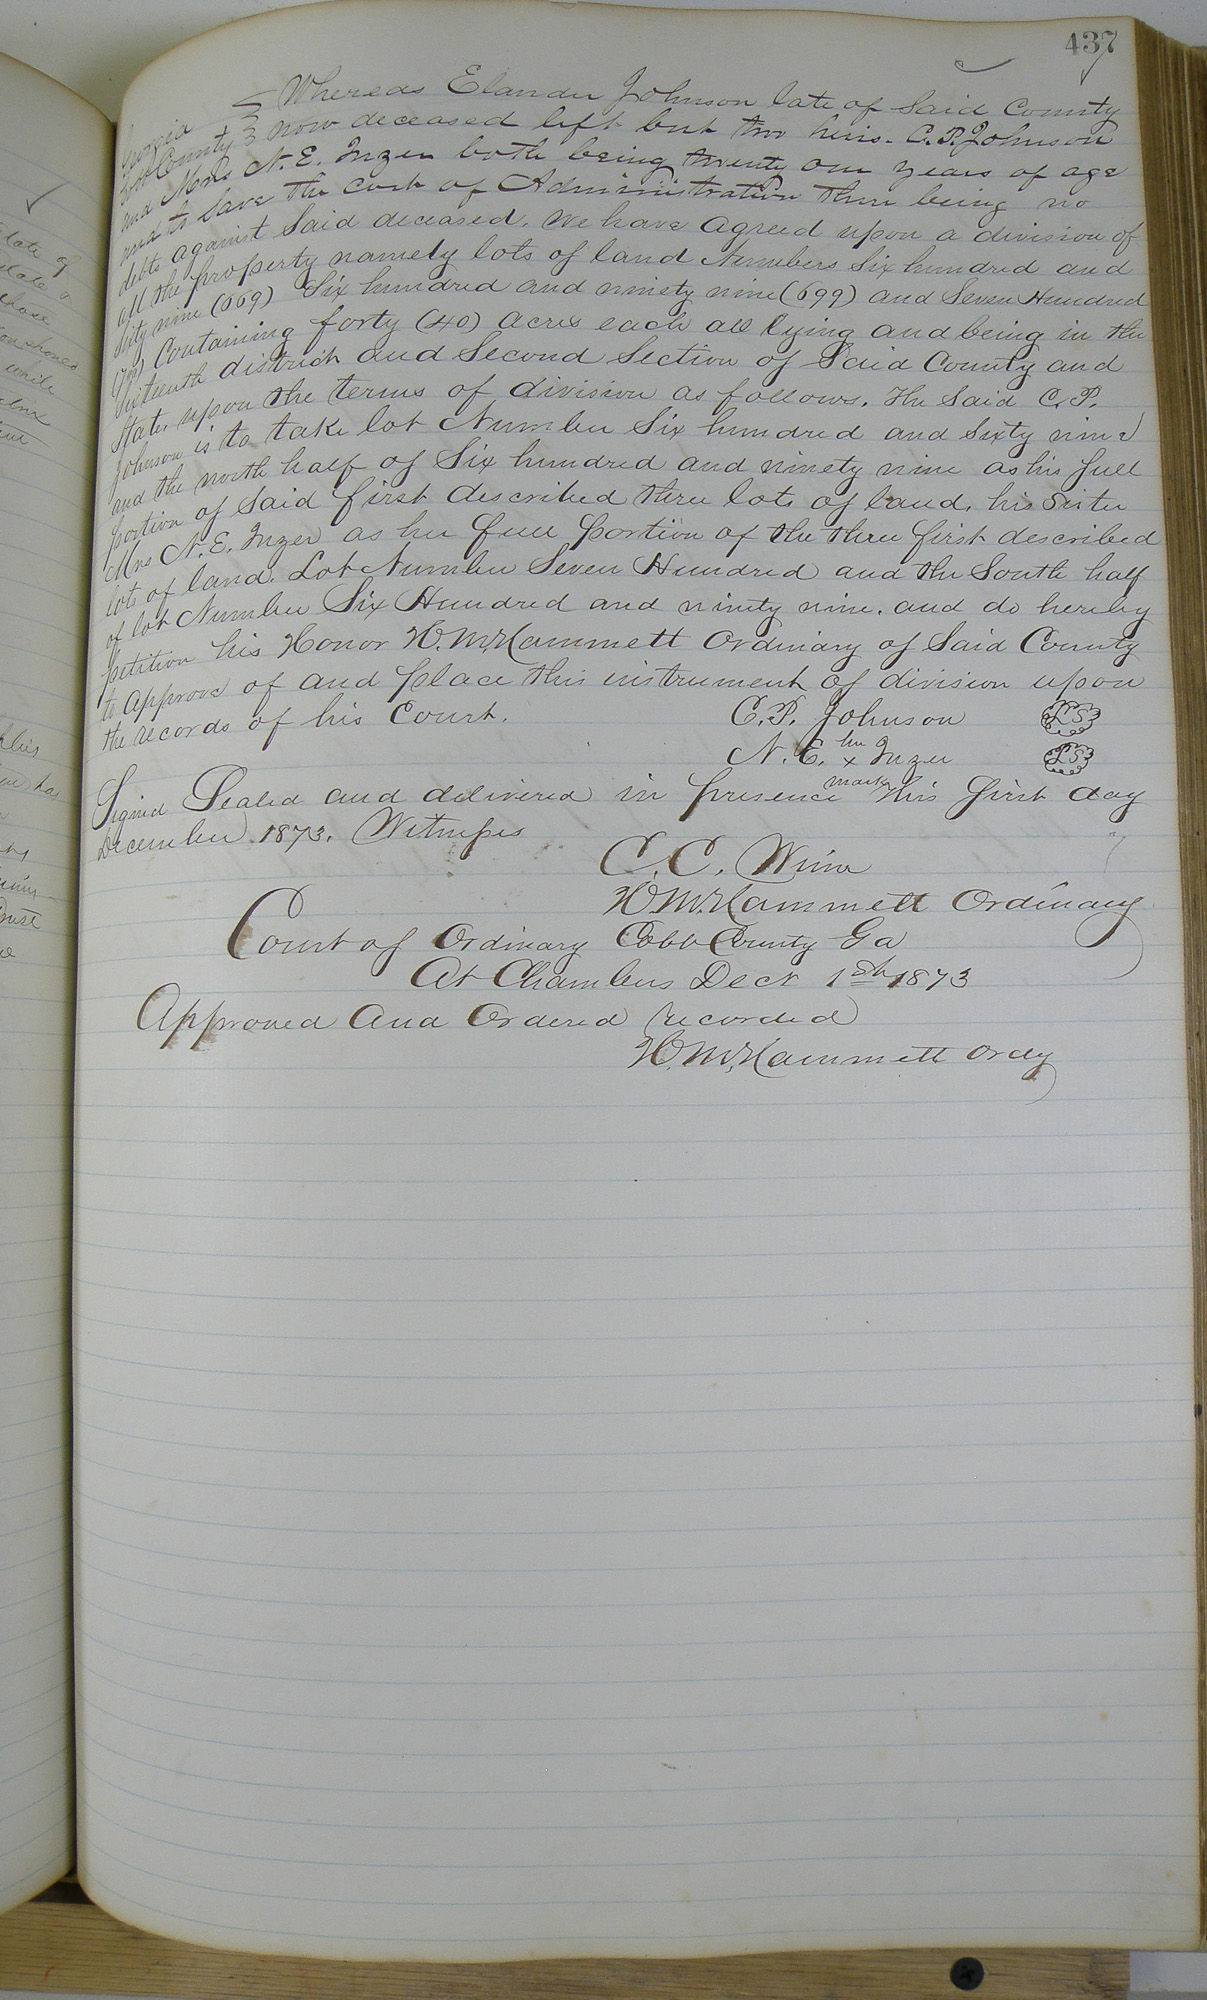 437
Georgia Whereas Elander Johnson late of Said County
Cobb County now deceased left but two heirs. C. P. Johnson
and Mrs N. E. Inzer both being twenty one years of age
and to Save the Cost of Administration there being no
debts against Said deceased. We have agreed upon a division of
all the property namely lots of land Numbers Six hundred and
Sixty nine (669) Six hundred and ninety nine (699) and Seven Hundred
(700) Containing forty (40) Acres each all lying and being in the
Sixteenth district and Second Section of Said County and
State, upon the terms of division as follows. The Said C. P.
Johnson is to take lot Number Six hundred and Sixty nine
and the north half of Six hundred and ninety nine as his full
portion of Said first described three lots of land, his Sister
Mrs N. E. Inzer as her full portion of the three first described
lots of land. Lot Number Seven Hundred and the South half
of lot Number Six Hundred and ninety nine. and do hereby
petition his Honor H. M. Hammett Ordinary of Said County
to Approve of and place this instrument of division upon
the records of his Court. C. P. Johnson LS
N. E. her x mark Inzer LS
Signed Sealed and delivered in presence this first day
December 1873. Witness
C. C. Winn
H. M. Hammett Ordinary
Court of Ordinary Cobb County Ga
At Chambers Decr 1st 1873
Approved and Ordered recorded
H. M. Hammett Ordy